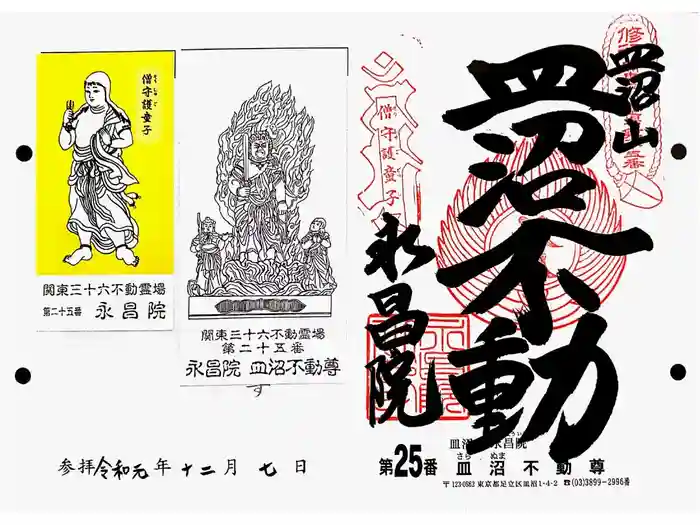 僧守護童子
そうしゅご
関東三十六不動霊場
第二十五番 永昌院
関東三十六不動霊場
第二十五番
永昌院 皿沼不動尊
す
参拝令和元年十二月七日
皿沼山
皿沼不動
僧守護童子
永昌院
皿沼 永昌院
さら ぬま
第25番 皿沼不動尊
〒123-0862 東京都足立区皿沼1-4-2 ☎(03)3899-2996番